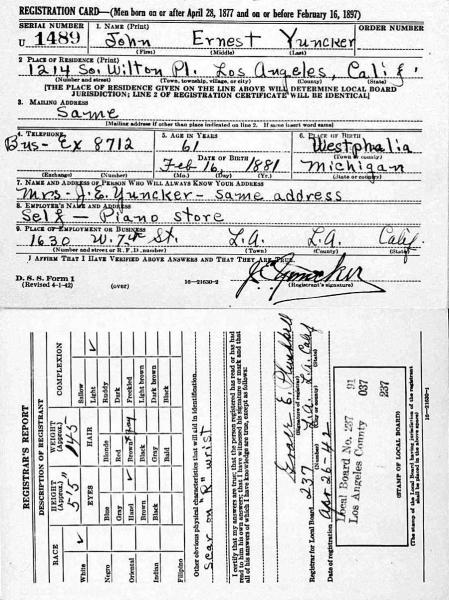 REGISTRATION CARD—(Men born on or after April 28, 1877 and on or before February 16, 1897)
SERIAL NUMBER 1. NAME (Print) ORDER NUMBER
U 1489 John Ernest Yuncker
(First) (Middle) (Last)
2. PLACE OF RESIDENCE (Print)
1214 So. Wilton Pl. Los Angeles, Calif.
(Number and street) (Town, township, village, or city) (County) (State)
[THE PLACE OF RESIDENCE GIVEN ON THE LINE ABOVE WILL DETERMINE LOCAL BOARD
JURISDICTION; LINE 2 OF REGISTRATION CERTIFICATE WILL BE IDENTICAL]
3. MAILING ADDRESS
Same
[Mailing address if other than place indicated on line 2. If same insert word same]
4. TELEPHONE 5. AGE IN YEARS 6. PLACE OF BIRTH
Bus- Ex 8712 61 Westphalia
DATE OF BIRTH (Town or county)
Feb 16, 1881 Michigan
(Exchange) (Number) (Mo.) (Day) (Yr.) (State or country)
7. NAME AND ADDRESS OF PERSON WHO WILL ALWAYS KNOW YOUR ADDRESS
Mrs- J.E. Yuncker- same address
8. EMPLOYER'S NAME AND ADDRESS
Self - Piano store
9. PLACE OF EMPLOYMENT OR BUSINESS
1630 W. 7th St. L.A. L.A. Calif
(Number and street or R. F. D. number) (Town) (County) (State)
I AFFIRM THAT I HAVE VERIFIED ABOVE ANSWERS AND THAT THEY ARE TRUE.
D. S. S. Form 1
(Revised 4-1-42) (over) 16—21630-2 (Registrant's signature)
J.E. Yuncker
REGISTRAR'S REPORT
DESCRIPTION OF REGISTRANT
RACE HEIGHT (Approx.) WEIGHT (Approx.) COMPLEXION
5'5" 145
White ✓
Negro
Oriental
Indian
Filipino
EYES
Blue
Gray
Hazel ✓
Brown
Black
HAIR
Blonde
Red
Brown & Gray
Black
Gray
Bald
Sallow
Light ✓
Ruddy
Dark
Freckled
Light brown
Dark brown
Black
Other obvious physical characteristics that will aid in identification
scar on "R" wrist
I certify that my answers are true; that the person registered has read or has had
read to him his own answers; that I have witnessed his signature or mark and that
all of his answers of which I have knowledge are true, except as follows:
(Signature of registrar)
Registrar for Local Board 237 L.A. L.A. Calif
(Number) (City or county) (State)
Date of registration Apr 26-42
Local Board No. 237 91
Los Angeles County 037
237
(STAMP OF LOCAL BOARD)
(The stamp of the Local Board having jurisdiction of the registrant
shall be placed in the above space.)
16—21630-1